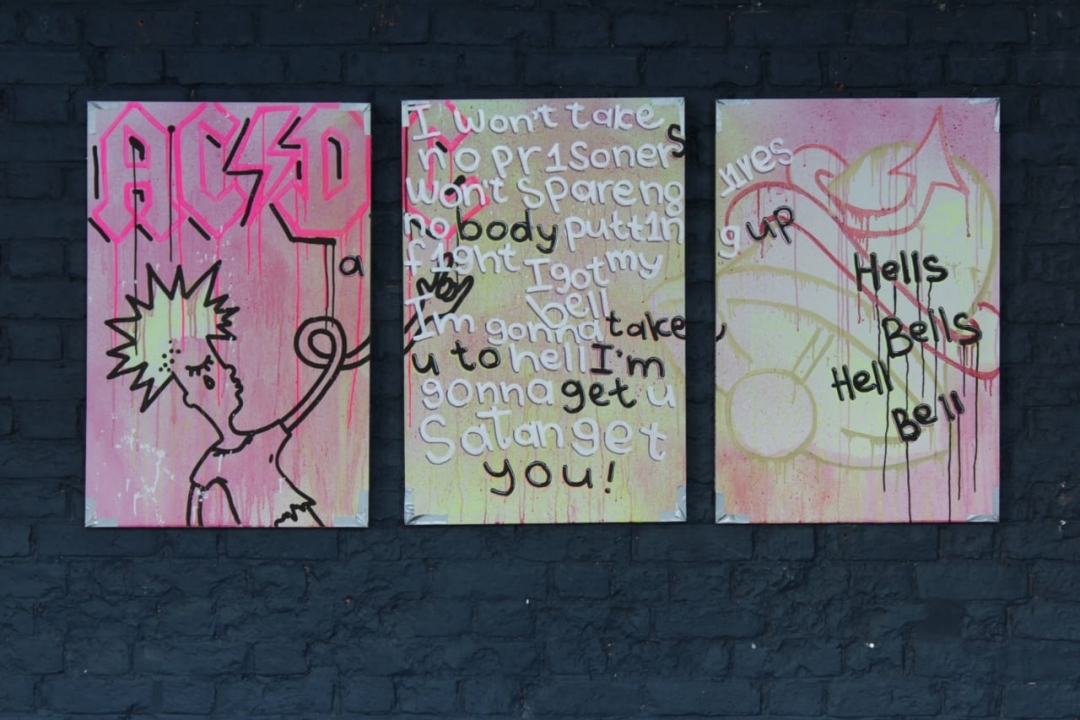 AC⚡D
a
I won't take
no pr1soners
won't spareng
no body putt1n
f1ght I got my
bell
I'm gonna take
u to hell I'm
gonna get u
Satan get
you!
g up
Hells
Bells
Hell
Bell